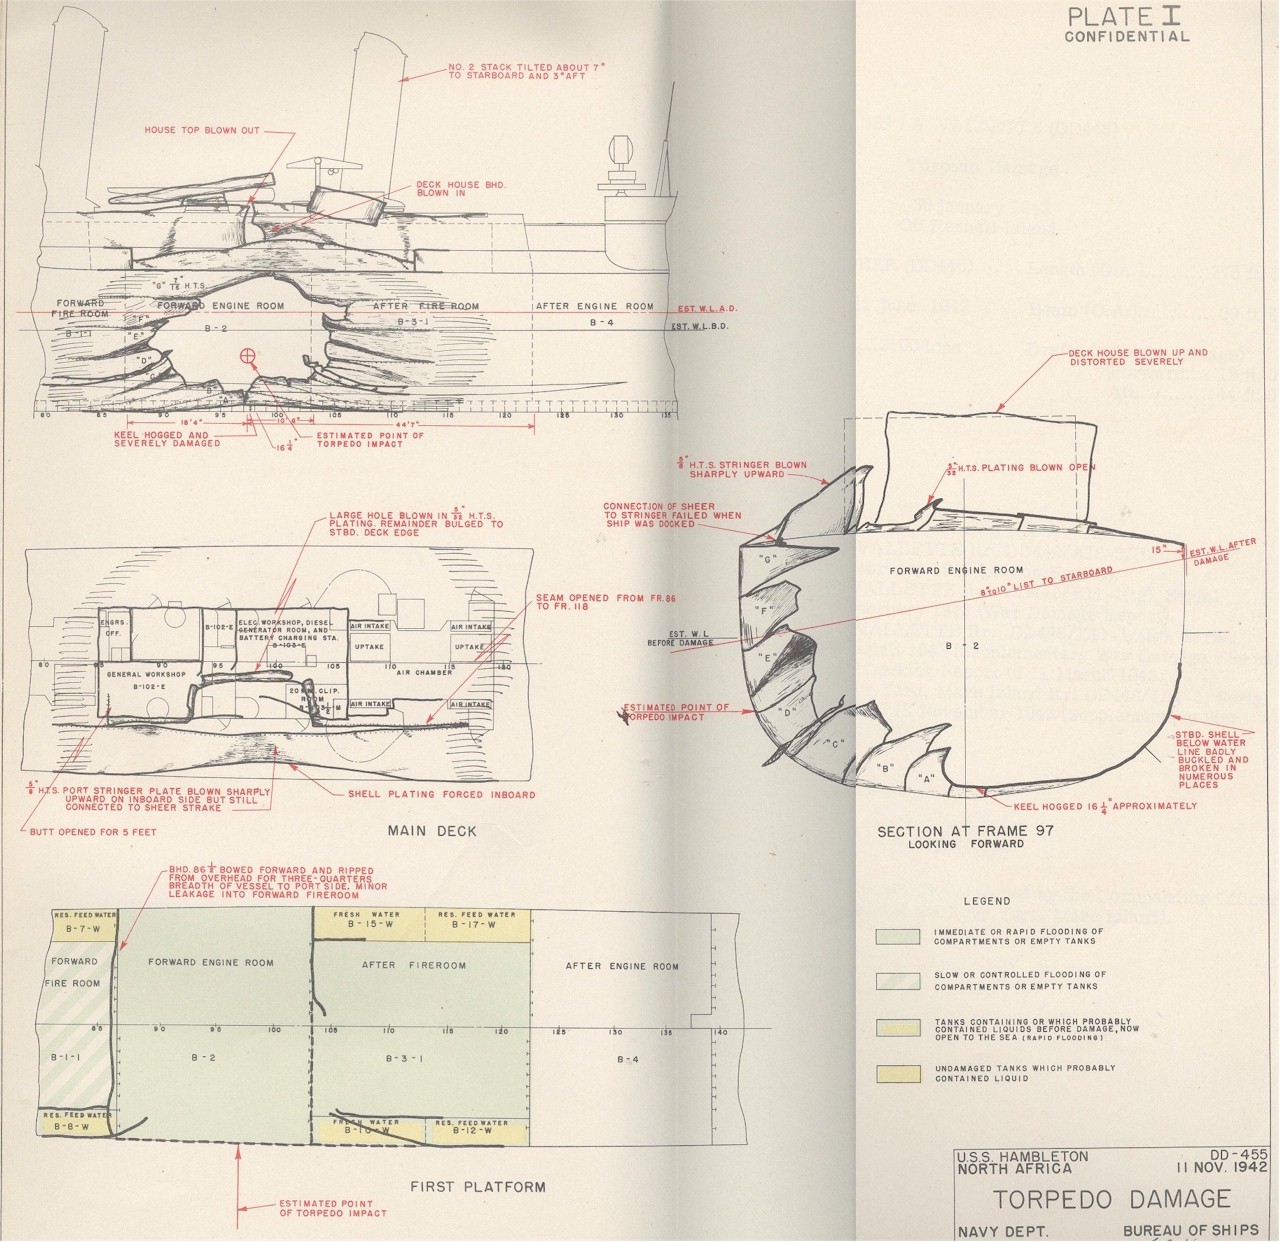 PLATE I
CONFIDENTIAL
NO. 2 STACK TILTED ABOUT 7°
TO STARBOARD AND 3° AFT
HOUSE TOP BLOWN OUT
DECK HOUSE BHD.
BLOWN IN
"G" 7/16" H.T.S.
FORWARD
FIRE ROOM
B-1-1
FORWARD ENGINE ROOM
B-2
AFTER FIRE ROOM
B-3-1
AFTER ENGINE ROOM
B-4
EST. W.L.A.D.
EST. W.L.B.D.
"F"
"E"
"D"
"C"
"B"
"A"
80 85 90 95 100 105 110 115 120 125 130 135
18'4" 10'8" 44'7"
KEEL HOGGED AND
SEVERELY DAMAGED
16 1/4"
ESTIMATED POINT OF
TORPEDO IMPACT
LARGE HOLE BLOWN IN 5/32" H.T.S.
PLATING. REMAINDER BULGED TO
STBD. DECK EDGE
SEAM OPENED FROM FR.86
TO FR. 118
ENGRS.
OFF.
B-102-E
ELEC. WORKSHOP, DIESEL
GENERATOR ROOM, AND
BATTERY CHARGING STA.
B-103-E
AIR INTAKE
AIR INTAKE
UPTAKE
UPTAKE
80 85 90 95 100 105 110 115 120
GENERAL WORKSHOP
B-102-E
AIR CHAMBER
20MM. CLIP.
ROOM
B-103 1/2-M
AIR INTAKE
AIR INTAKE
5/8" H.T.S. PORT STRINGER PLATE BLOWN SHARPLY
UPWARD ON INBOARD SIDE BUT STILL
CONNECTED TO SHEER STRAKE
SHELL PLATING FORCED INBOARD
BUTT OPENED FOR 5 FEET
MAIN DECK
DECK HOUSE BLOWN UP AND
DISTORTED SEVERELY
5/8" H.T.S. STRINGER BLOWN
SHARPLY UPWARD
5/32" H.T.S. PLATING BLOWN OPEN
CONNECTION OF SHEER
TO STRINGER FAILED WHEN
SHIP WAS DOCKED
15"
EST. W.L. AFTER
DAMAGE
FORWARD ENGINE ROOM
8° TO 10° LIST TO STARBOARD
EST. W.L.
BEFORE DAMAGE
B - 2
"G"
"F"
"E"
"D"
"C"
"B"
"A"
ESTIMATED POINT OF
TORPEDO IMPACT
STBD. SHELL
BELOW WATER
LINE BADLY
BUCKLED AND
BROKEN IN
NUMEROUS
PLACES
KEEL HOGGED 16 1/4" APPROXIMATELY
SECTION AT FRAME 97
LOOKING FORWARD
BHD. 86 1/2 BOWED FORWARD AND RIPPED
FROM OVERHEAD FOR THREE-QUARTERS
BREADTH OF VESSEL TO PORT SIDE. MINOR
LEAKAGE INTO FORWARD FIREROOM
RES. FEED WATER
B-7-W
FRESH WATER
B-15-W
RES. FEED WATER
B-17-W
FORWARD
FIRE ROOM
FORWARD ENGINE ROOM
AFTER FIREROOM
AFTER ENGINE ROOM
85 90 95 105 110 115 120 125 130 135 140
B-1-1
B-2
B-3-1
B-4
RES. FEED WATER
B-8-W
FRESH WATER
B-10-W
RES. FEED WATER
B-12-W
FIRST PLATFORM
ESTIMATED POINT
OF TORPEDO IMPACT
LEGEND
IMMEDIATE OR RAPID FLOODING OF
COMPARTMENTS OR EMPTY TANKS
SLOW OR CONTROLLED FLOODING OF
COMPARTMENTS OR EMPTY TANKS
TANKS CONTAINING OR WHICH PROBABLY
CONTAINED LIQUIDS BEFORE DAMAGE, NOW
OPEN TO THE SEA (RAPID FLOODING)
UNDAMAGED TANKS WHICH PROBABLY
CONTAINED LIQUID
U.S.S. HAMBLETON DD-455
NORTH AFRICA 11 NOV. 1942
TORPEDO DAMAGE
NAVY DEPT. BUREAU OF SHIPS